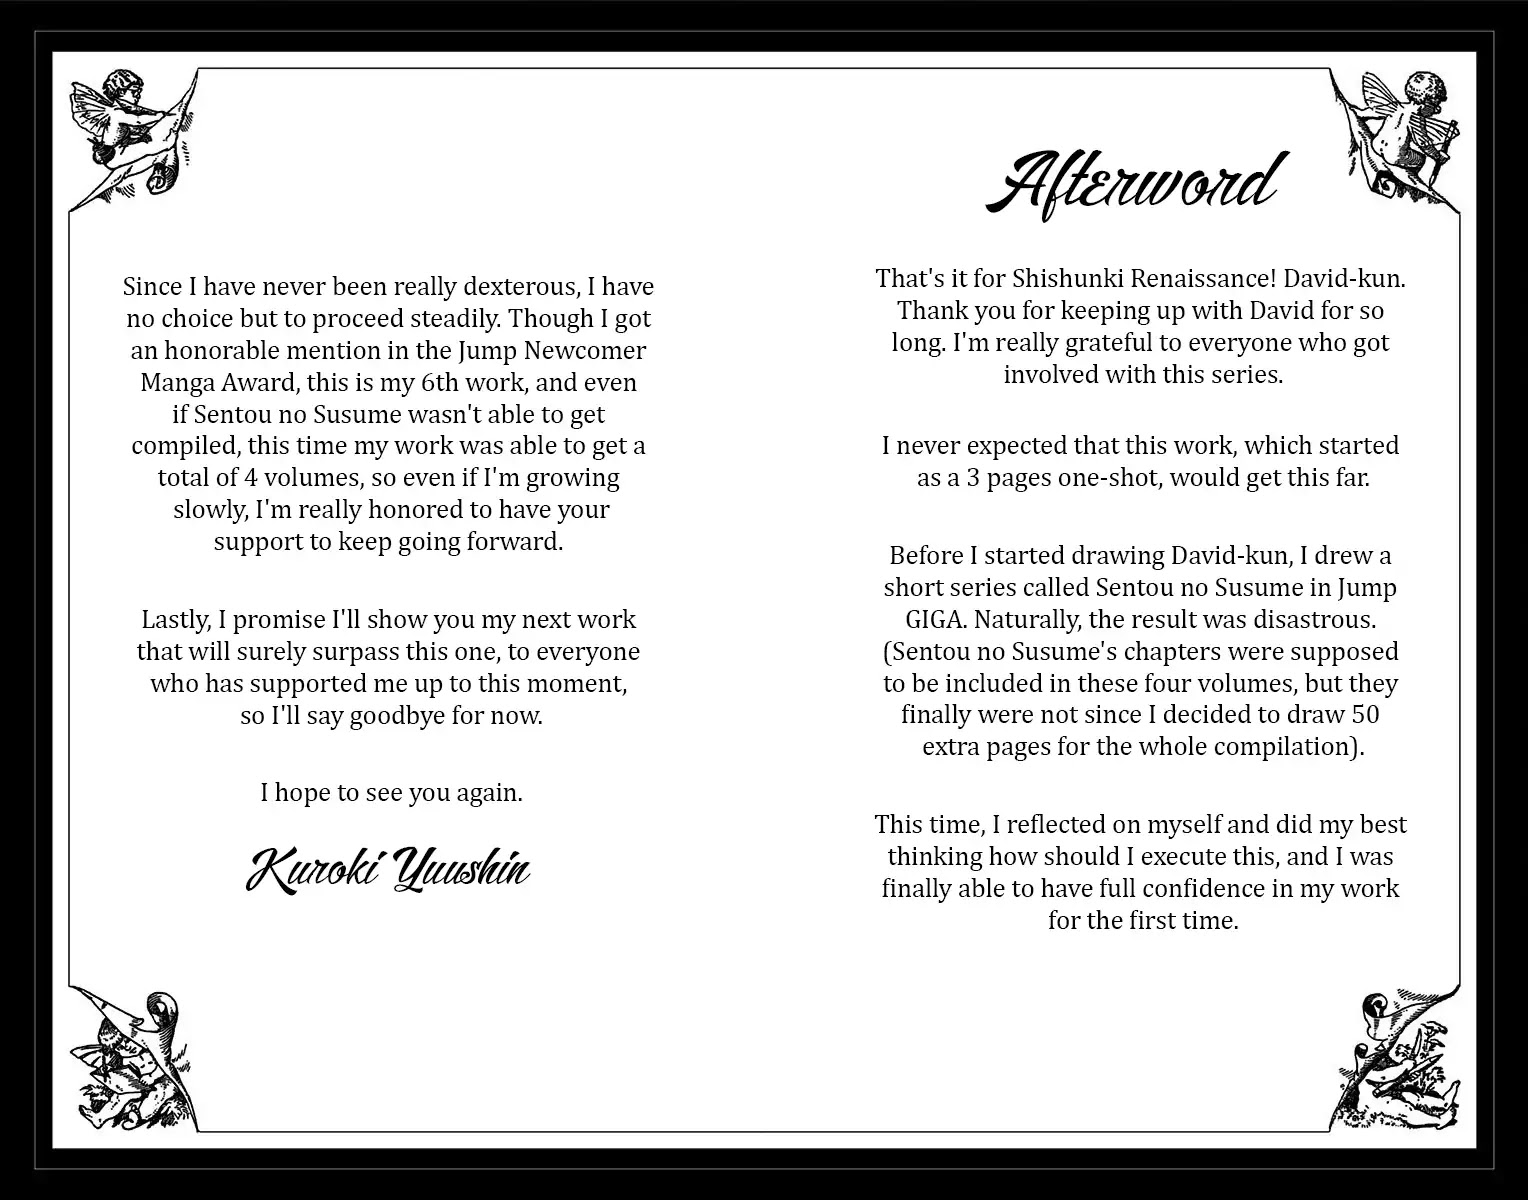 Afterword
That's it for Shishunki Renaissance! David-kun.
Thank you for keeping up with David for so
long. I'm really grateful to everyone who got
involved with this series.
I never expected that this work, which started
as a 3 pages one-shot, would get this far.
Before I started drawing David-kun, I drew a
short series called Sentou no Susume in Jump
GIGA. Naturally, the result was disastrous.
(Sentou no Susume's chapters were supposed
to be included in these four volumes, but they
finally were not since I decided to draw 50
extra pages for the whole compilation).
This time, I reflected on myself and did my best
thinking how should I execute this, and I was
finally able to have full confidence in my work
for the first time.
Since I have never been really dexterous, I have
no choice but to proceed steadily. Though I got
an honorable mention in the Jump Newcomer
Manga Award, this is my 6th work, and even
if Sentou no Susume wasn't able to get
compiled, this time my work was able to get a
total of 4 volumes, so even if I'm growing
slowly, I'm really honored to have your
support to keep going forward.
Lastly, I promise I'll show you my next work
that will surely surpass this one, to everyone
who has supported me up to this moment,
so I'll say goodbye for now.
I hope to see you again.
Kuroki Yuushin